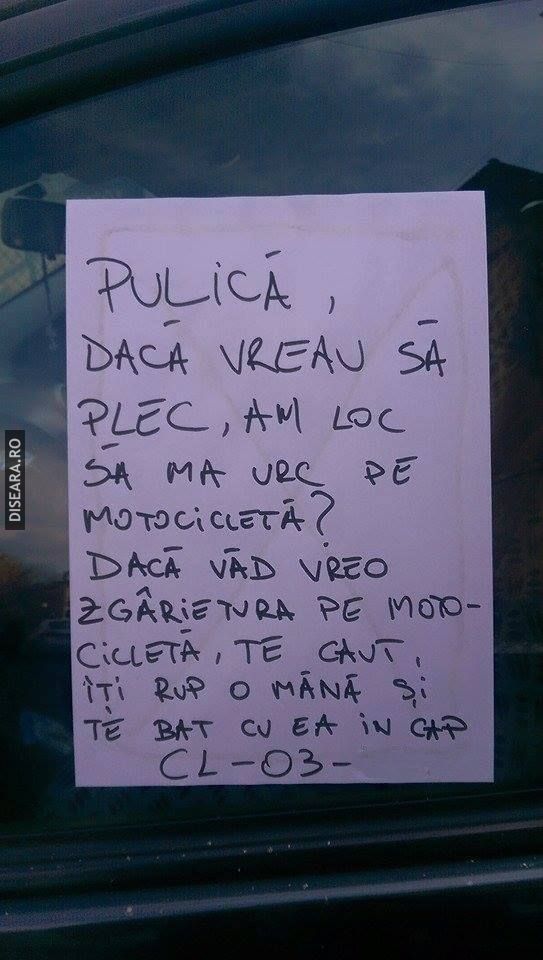 PULICĂ,
DACĂ VREAU SĂ
PLEC, AM LOC
SĂ MA URC PE
MOTOCICLETĂ?
DACĂ VĂD VREO
ZGÂRIETURA PE MOTO-
CICLETĂ, TE CAUT,
ÎȚI RUP O MĂNĂ ȘI
TE BAT CU EA IN CAP
CL-03-
DISEARA.RO